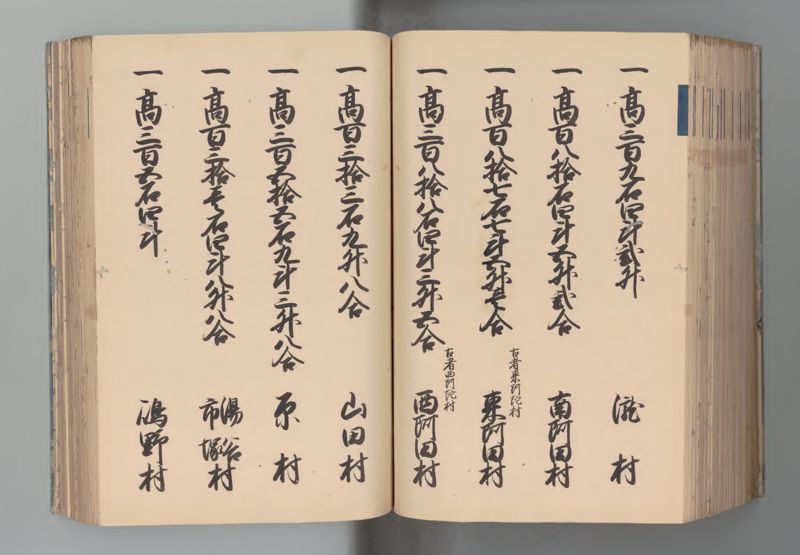 一高三百九石四斗弐升 瀧村
一高百八拾石四斗五升弐合 南阿田村
一高百八拾七石七斗五升壱合 古者東阿陀村 東阿田村
一高三百八拾八石四斗三升五合 古者西阿陀村 西阿田村
一高百三拾三石九升八合 山田村
一高三百五拾五石九斗三升八合 原村
一高百三拾壱石四斗八升八合 湯谷市塚村
一高三百五石四斗 鴻野村